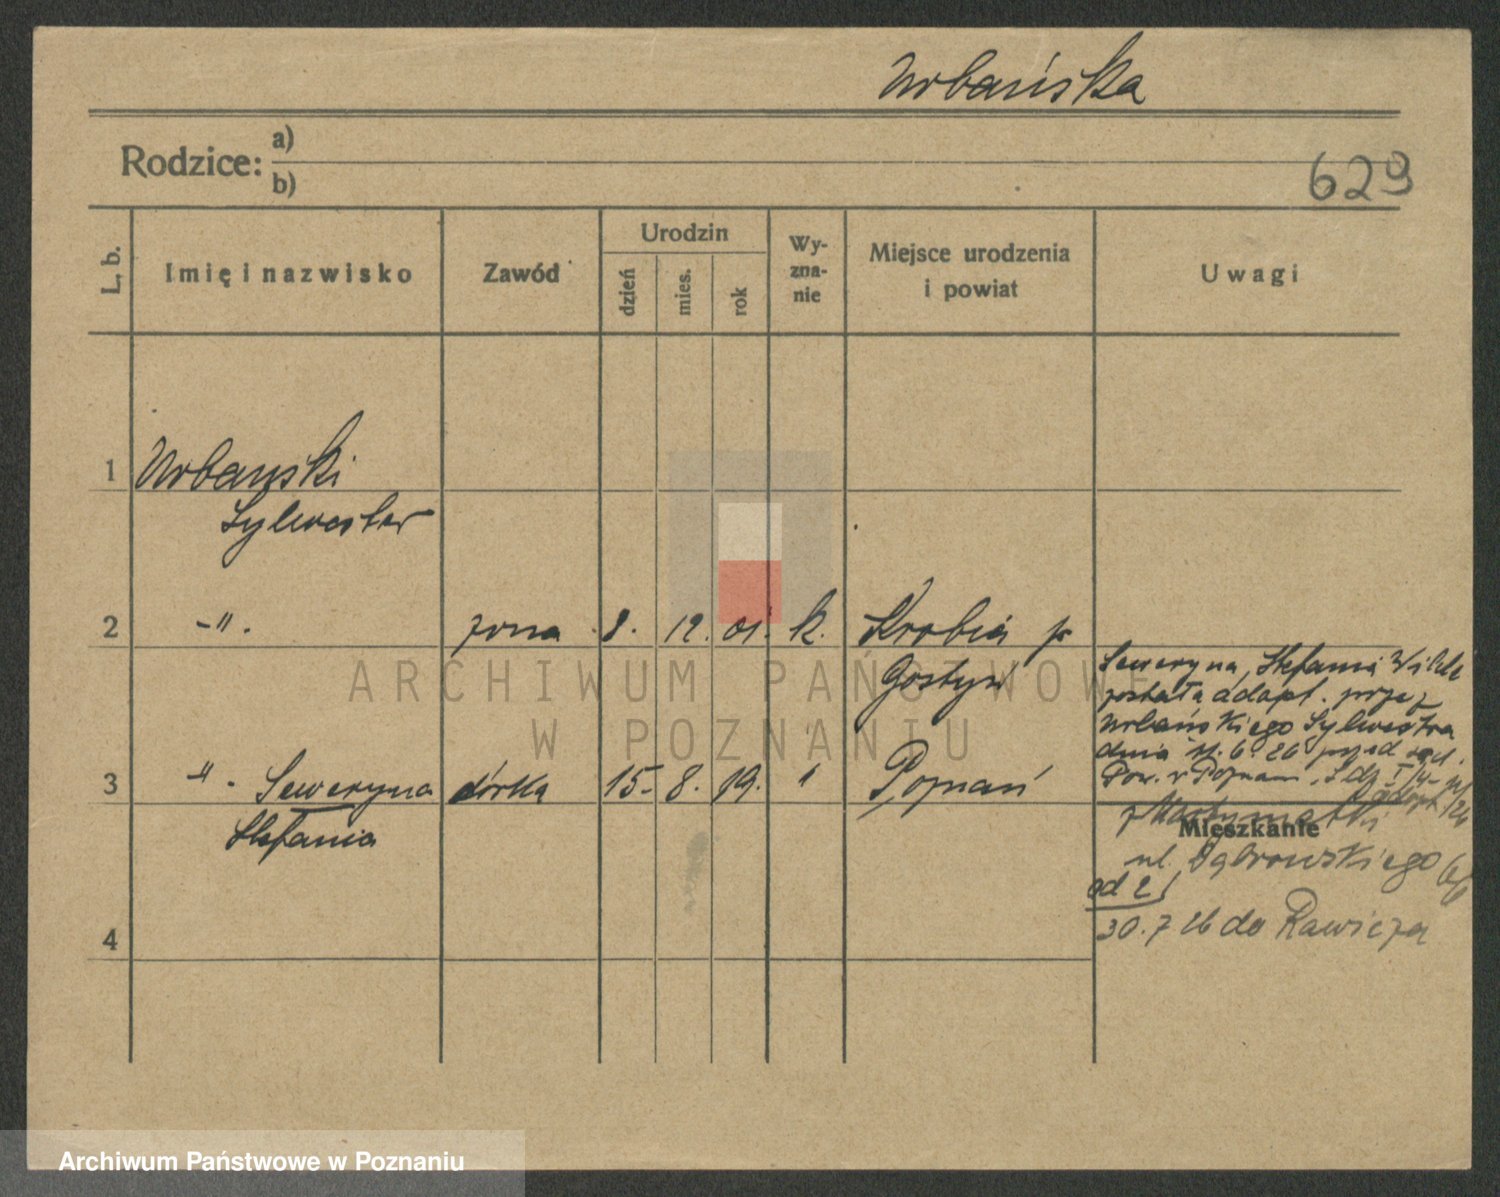 Urbańska
Rodzice: a)
b)
629
L. b. Imię i nazwisko Zawód Urodzin dzień mies. rok Wy-zna-nie Miejsce urodzenia i powiat Uwagi
1 Urbanski
Sylwester
2 -"- żona 8. 12. 01. k. Krobia p
Gostyń
3 -"- Seweryna córka 15. 8. 19. " Poznań
Stefania
4
Seweryna, Stefania
została adopt. przez
Urbańskiego Sylwestra
dnia 6 26 przed
Pow. w Poznaniu
Mieszkanie
ul. Dąbrowskiego
od 21
30.7 26 do Rawicza
ARCHIWUM PAŃSTWOWE
W POZNANIU
Archiwum Państwowe w Poznaniu